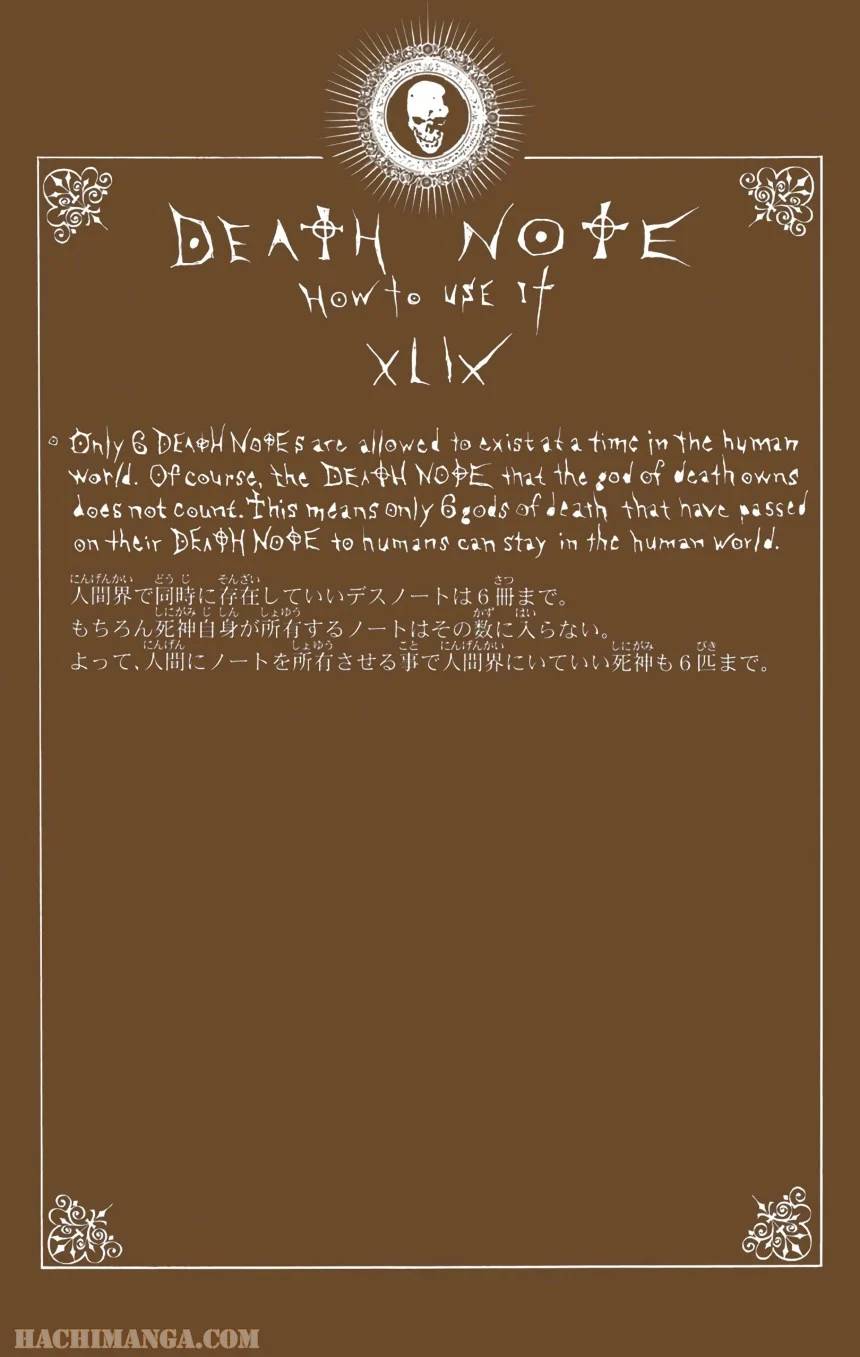 DEATH NOTE
HOW TO USE IT
XLIX
Only 6 DEATH NOTEs are allowed to exist at a time in the human
world. Of course, the DEATH NOTE that the god of death owns
does not count. This means only 6 gods of death that have passed
on their DEATH NOTE to humans can stay in the human world.
にんげんかい どうじ そんざい さつ
人間界で同時に存在していいデスノートは６冊まで。
しにがみ じしん しょゆう かず はい
もちろん死神自身が所有するノートはその数に入らない。
にんげん しょゆう こと にんげんかい しにがみ びき
よって、人間にノートを所有させる事で人間界にいていい死神も６匹まで。
HACHIMANGA.COM